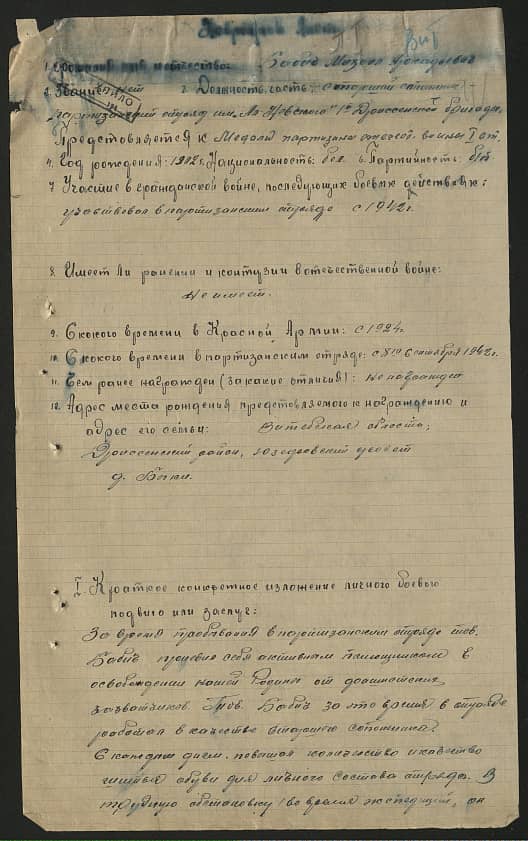 Наградной Лист
ВиТ
1. Фамилия имя и отчество: Бабич Михаил Аркадьевич
2. Звание: нет 3. Должность, часть: старший сапожник
партизанский отряд им. "Ал. Невского" 1ой Дриссенской бригады.
Представляется к Медали партизана отечеств. войны I ст.
4. Год рождения: 1902 г. Национальность: бел. 6. Партийность: б/п
7. Участие в гражданской войне, последующих боевых действиях:
участвовал в партизанском отряде с 1942 г.
8. Имеет ли ранения и контузии в отечественной войне:
не имеет.
9. С какого времени в Красной Армии: с 1924 г.
10. С какого времени в партизанском отряде: с сентября 1942 г.
11. Чем ранее награжден (за какие отличия): не награжден
12. Адрес места рождения представляемого к награждению и
адрес его семьи: Витебская область,
Дриссенский район, совет
д.
I. Краткое конкретное изложение личного боевого
подвига или заслуг:
За время пребывания в партизанском отряде тов.
Бабич проявил себя активным помощником в
освобождении нашей Родины от фашистских
захватчиков. Тов. Бабич за это время в отряде
работал в качестве старшего сапожника.
С каждым днем повышал количество и качество
шитья обуви для личного состава отряда. В
трудную обстановку (во время экспедиций), он